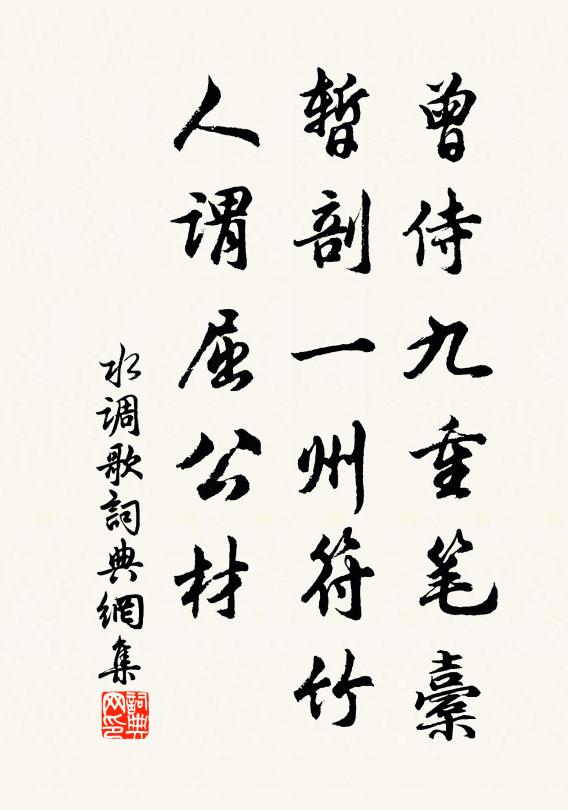 曾侍九重笔橐
暂剖一州符竹
人谓屈公材
水调歌詞典網集
詞典网印